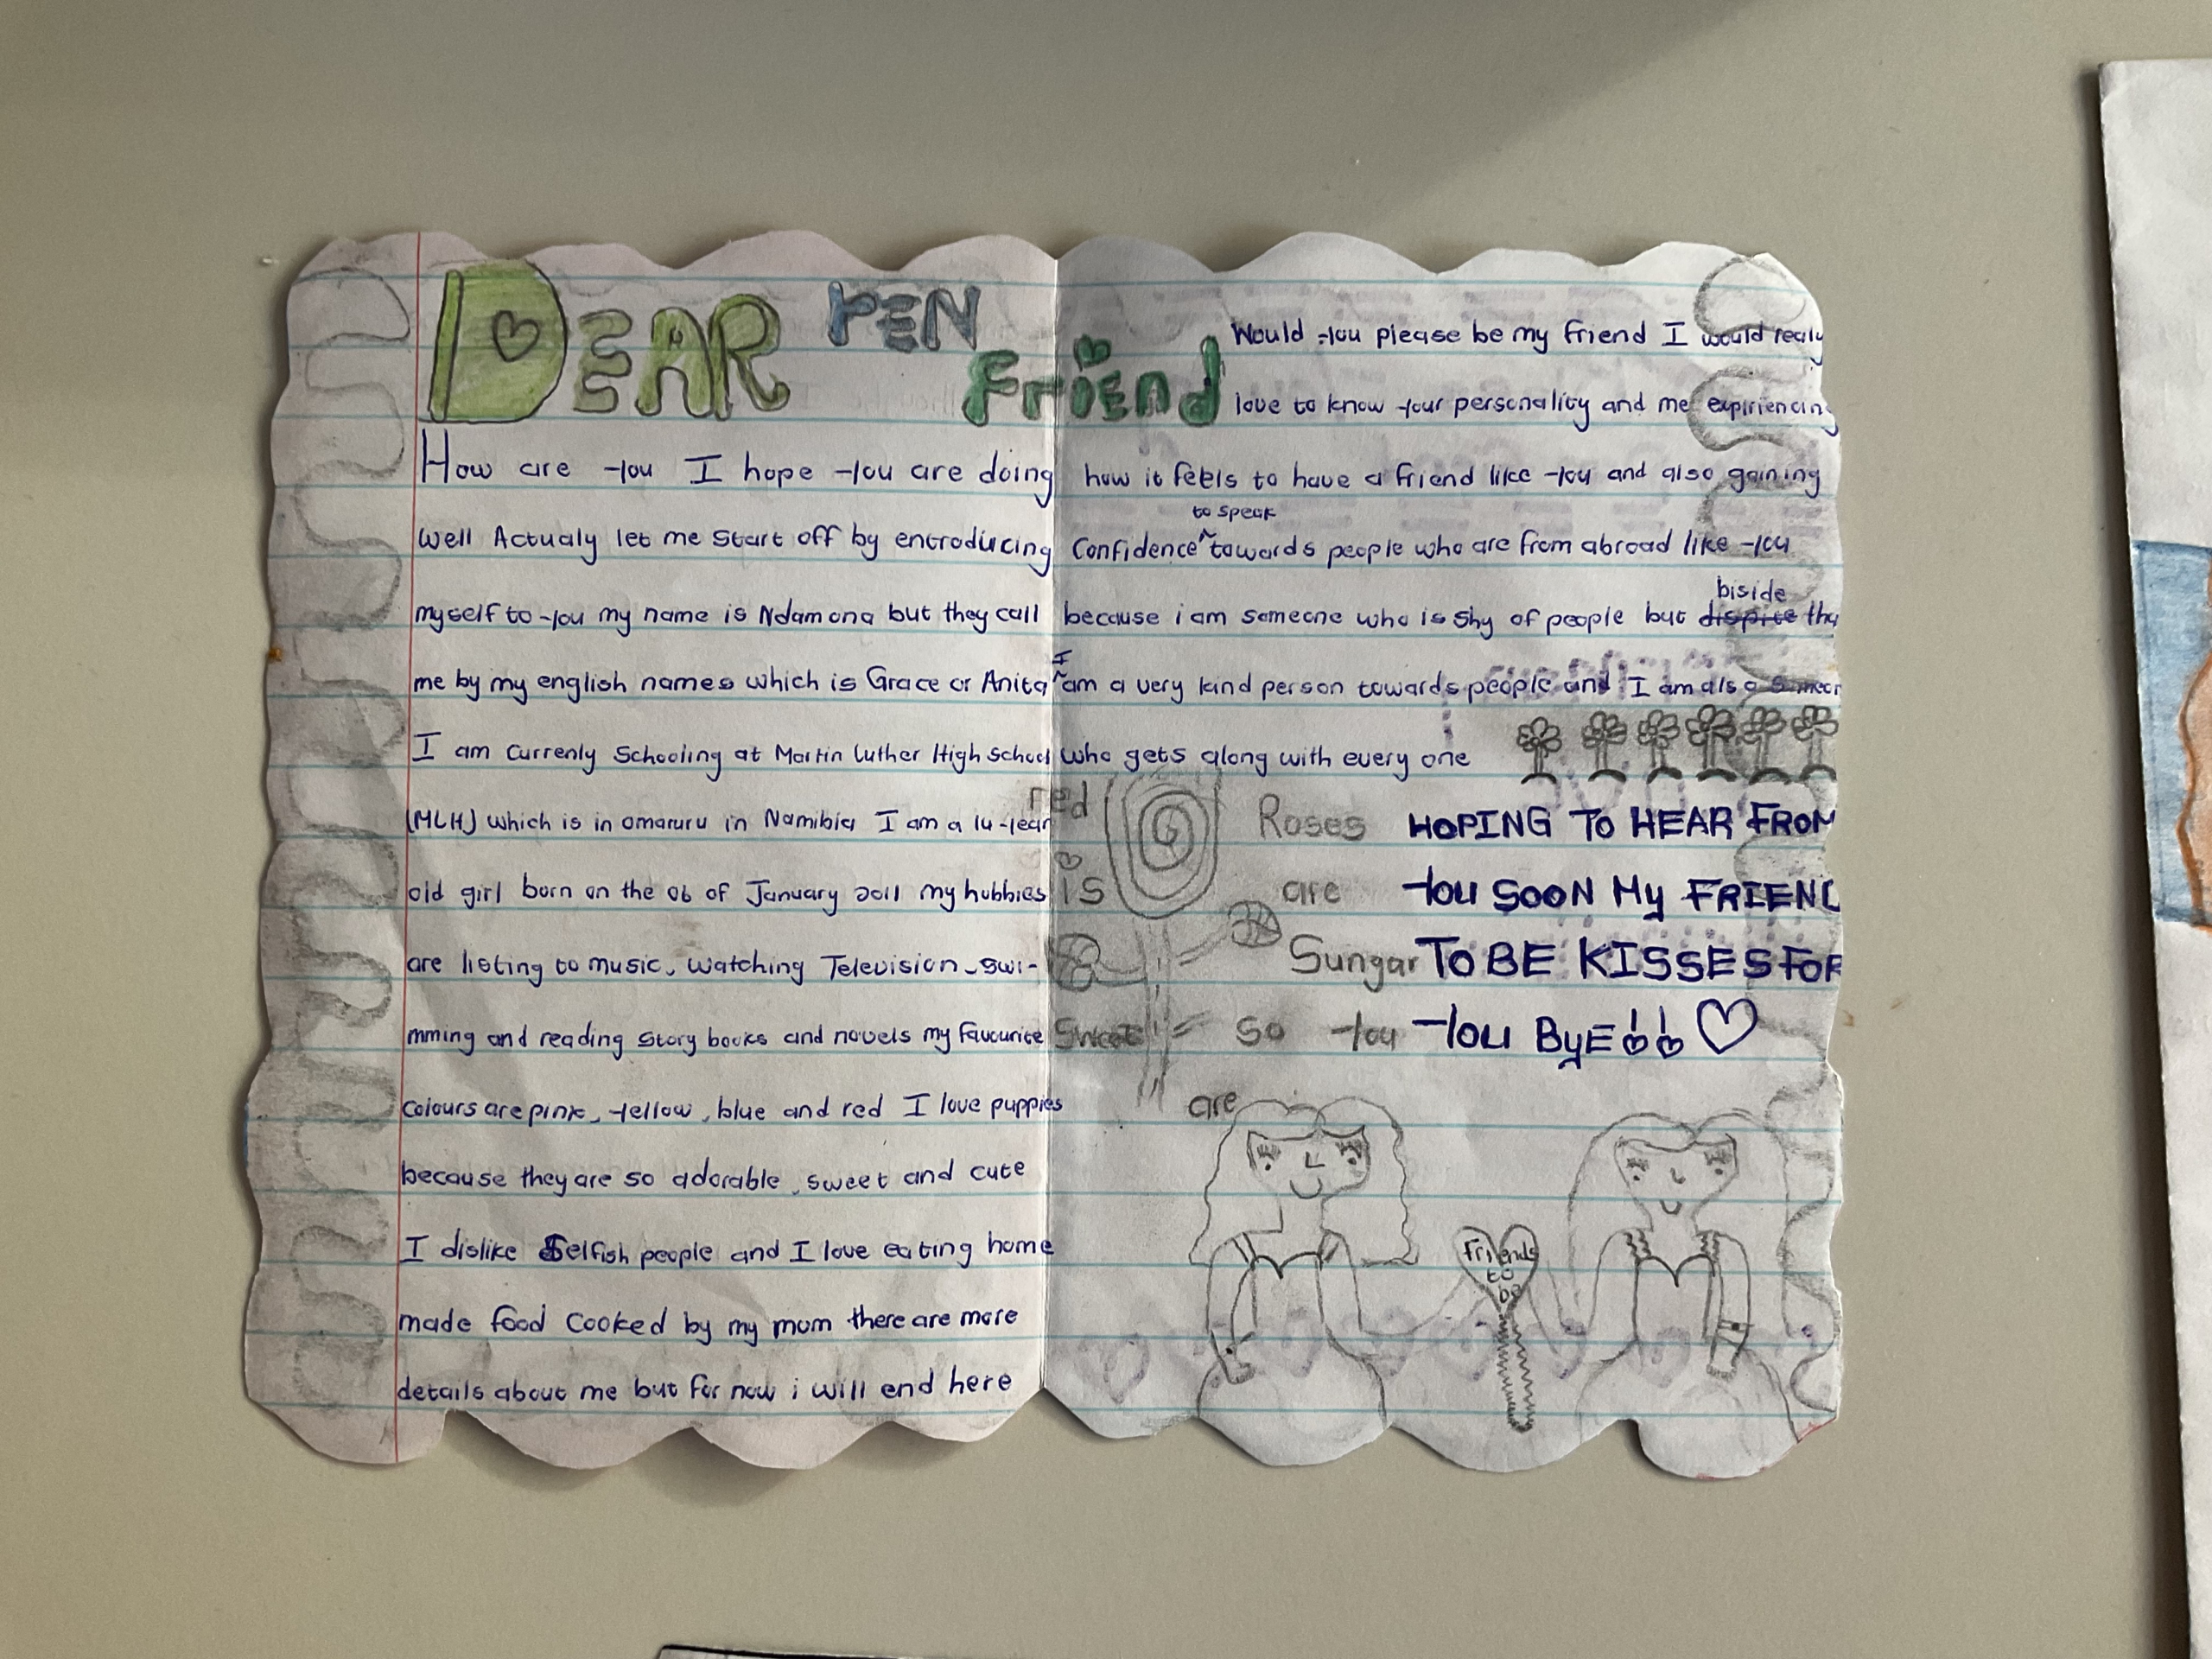 DEAR PEN
Friend
How are you I hope you are doing
well Actualy let me start off by entroducing
myself to you my name is Ndamona but they call
me by my english names which is Grace or Anita
I am currenly schooling at Martin Luther High school
(MLH) which is in omaruru in Namibia I am a 14 year
old girl born on the 06 of January 2011 my hobbies
are listing to music, watching Television, swi-
mming and reading story books and novels my favourite
colours are pink, yellow, blue and red I love puppies
because they are so adorable, sweet and cute
I dislike Selfish people and I love eating home
made food cooked by my mom there are more
details about me but for now i will end here
Would you please be my friend I would realy
love to know your personality and me expiriencing
how it feels to have a friend like you and also gaining
Confidence to speak towards people who are from abroad like you
because i am someone who is shy of people but dispite biside
I am a very kind person towards people and I am also
who gets along with every one
Roses
are
red
Sungar
is
sweet so you
are
HOPING TO HEAR FROM
You SOON My FRIEND
TO BE KISSES FOR
You ByE!! ♡
Friends
to
be